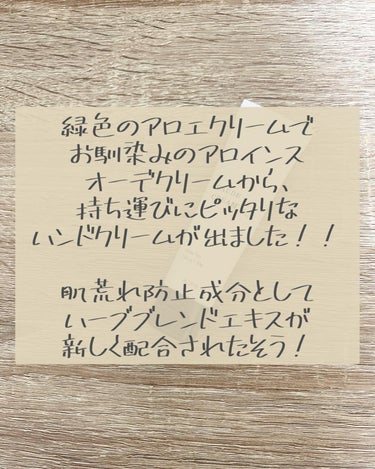 緑色のアロエクリームで
お馴染みのアロインス
オーデクリームから、
持ち運びにピッタリな
ハンドクリームが出ました！！
肌荒れ防止成分として
ハーブブレンドエキスが
新しく配合されたそう！